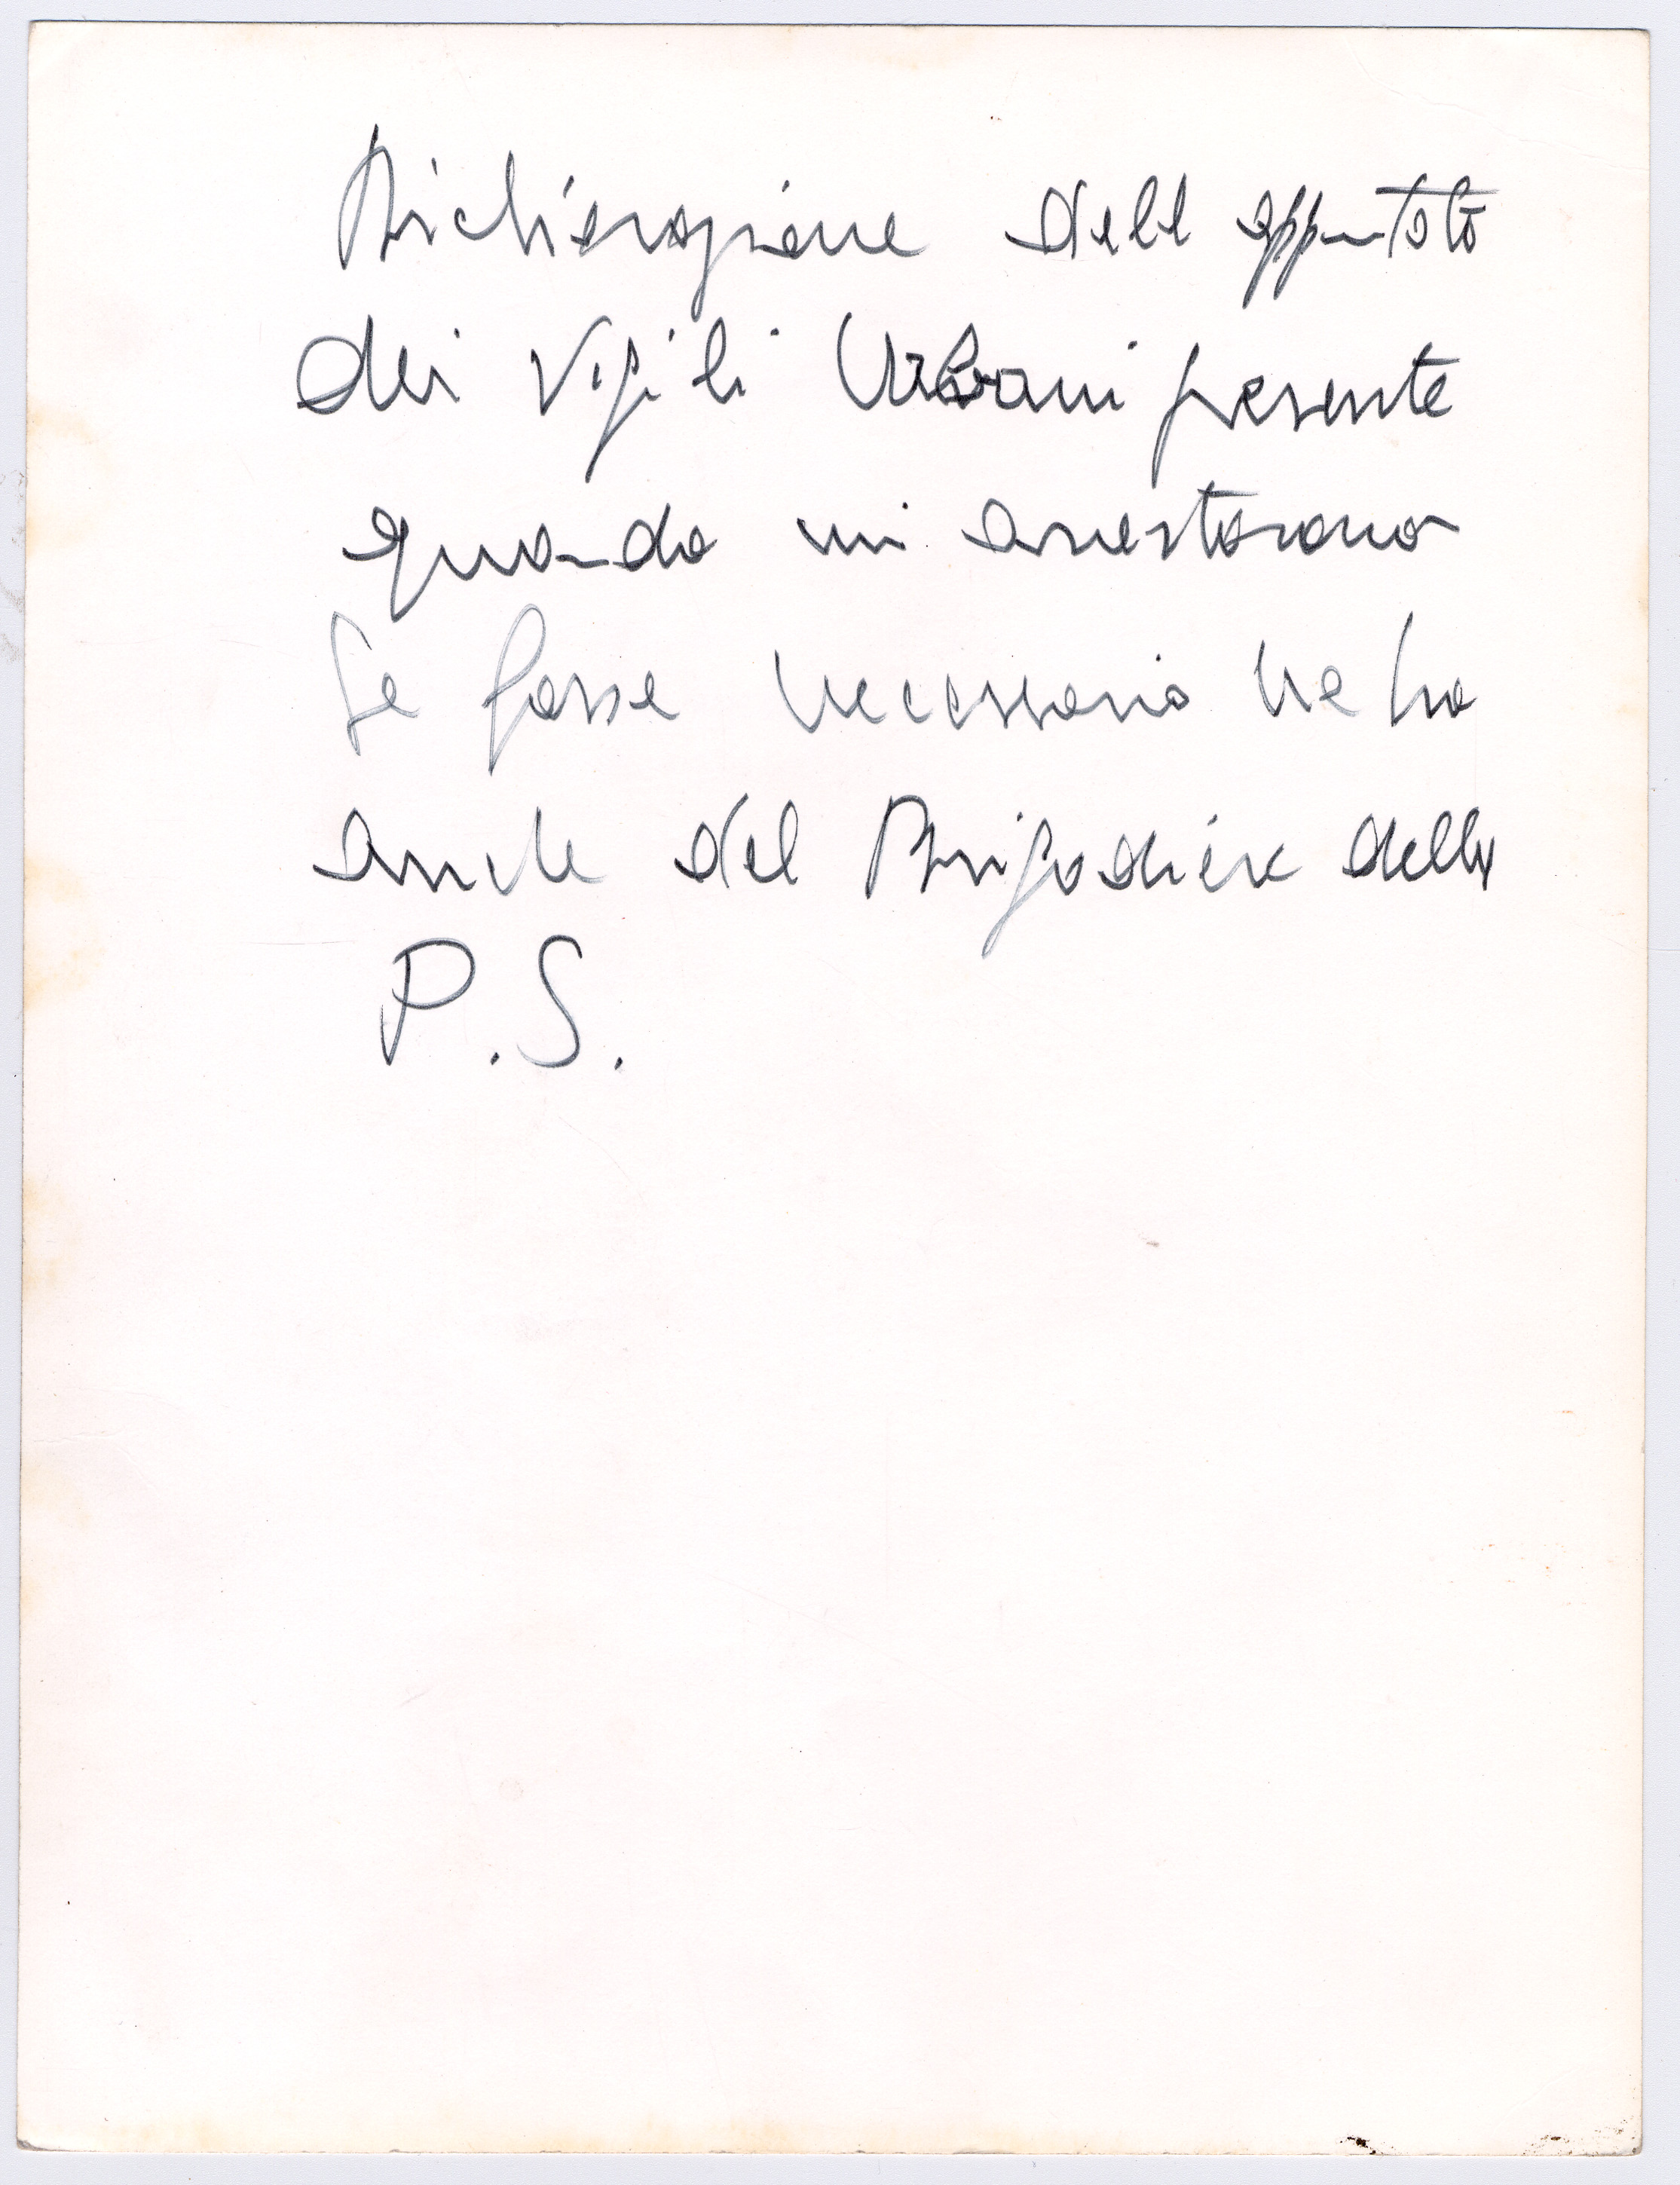 Dichiarazione dell appuntato
dei Vigili Urbani presente
quando mi arrestarono
Se fosse necessario ne ho
anche del Brigadiere della
P.S.